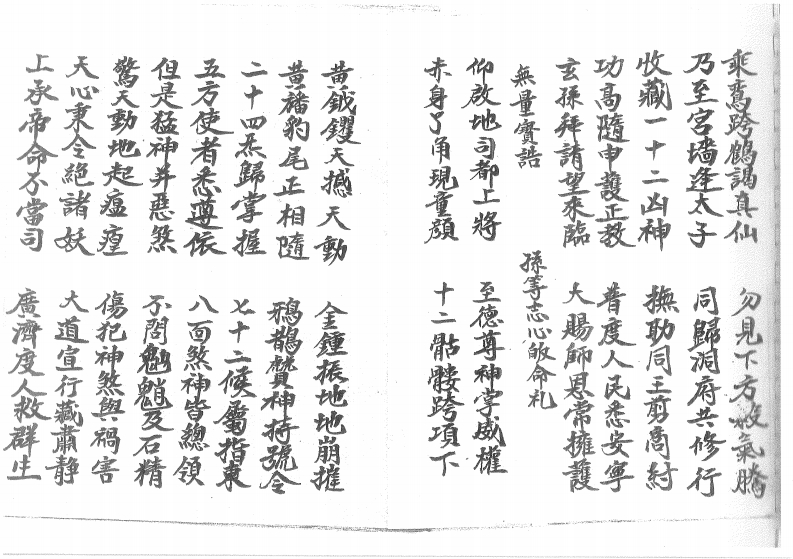 乘鸞跨鶴謁真仙　勿見下方殺氣騰
乃至宮墻逢太子　同歸洞府共修行
收藏一十二凶神　撫助同王剪商紂
功高隨申護正教　普度人民悉安寧
玄孫拜請望來臨　大賜師恩常擁護
無量寶誥　孫等志心皈命礼
仰啟地司都上將　至德尊神掌威權
赤身丫角現童顏　十二骷髏跨項下
黃鉞鑼天撼天動　金鍾振地地崩摧
黃旛豹尾正相隨　鴉鵲贊神持號令
二十四炁歸掌握　七十二候屬指東
五方使者悉遵依　八面煞神皆總領
但是猛神并惡煞　不問魈及石精
驚天動地起瘟㾮　傷犯神煞與禍害
天心秉令絕諸妖　大道宣行藏肅静
上承帝命不當司　廣濟度人救群生